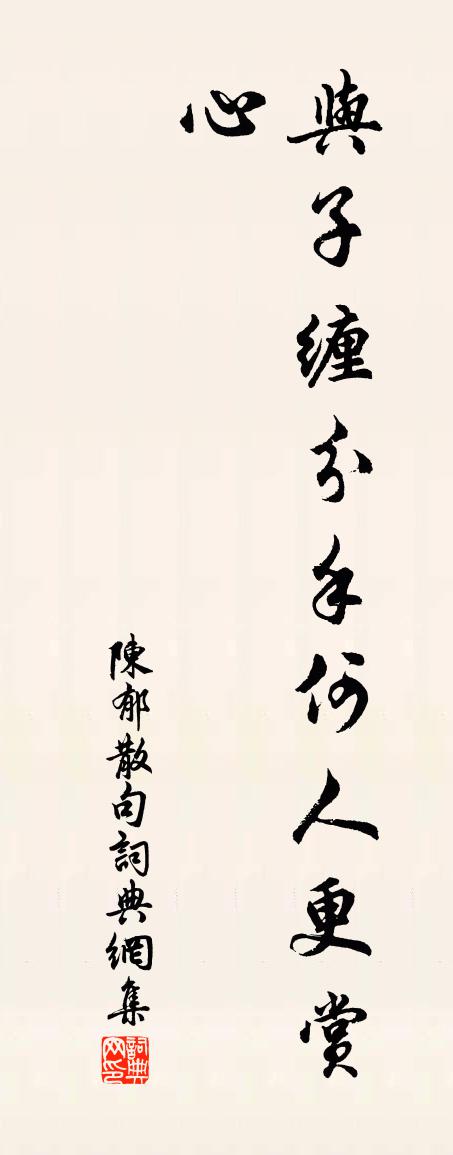 與子纏分手何人更賞
心
陳郁散句詞典網集
詞典
网印